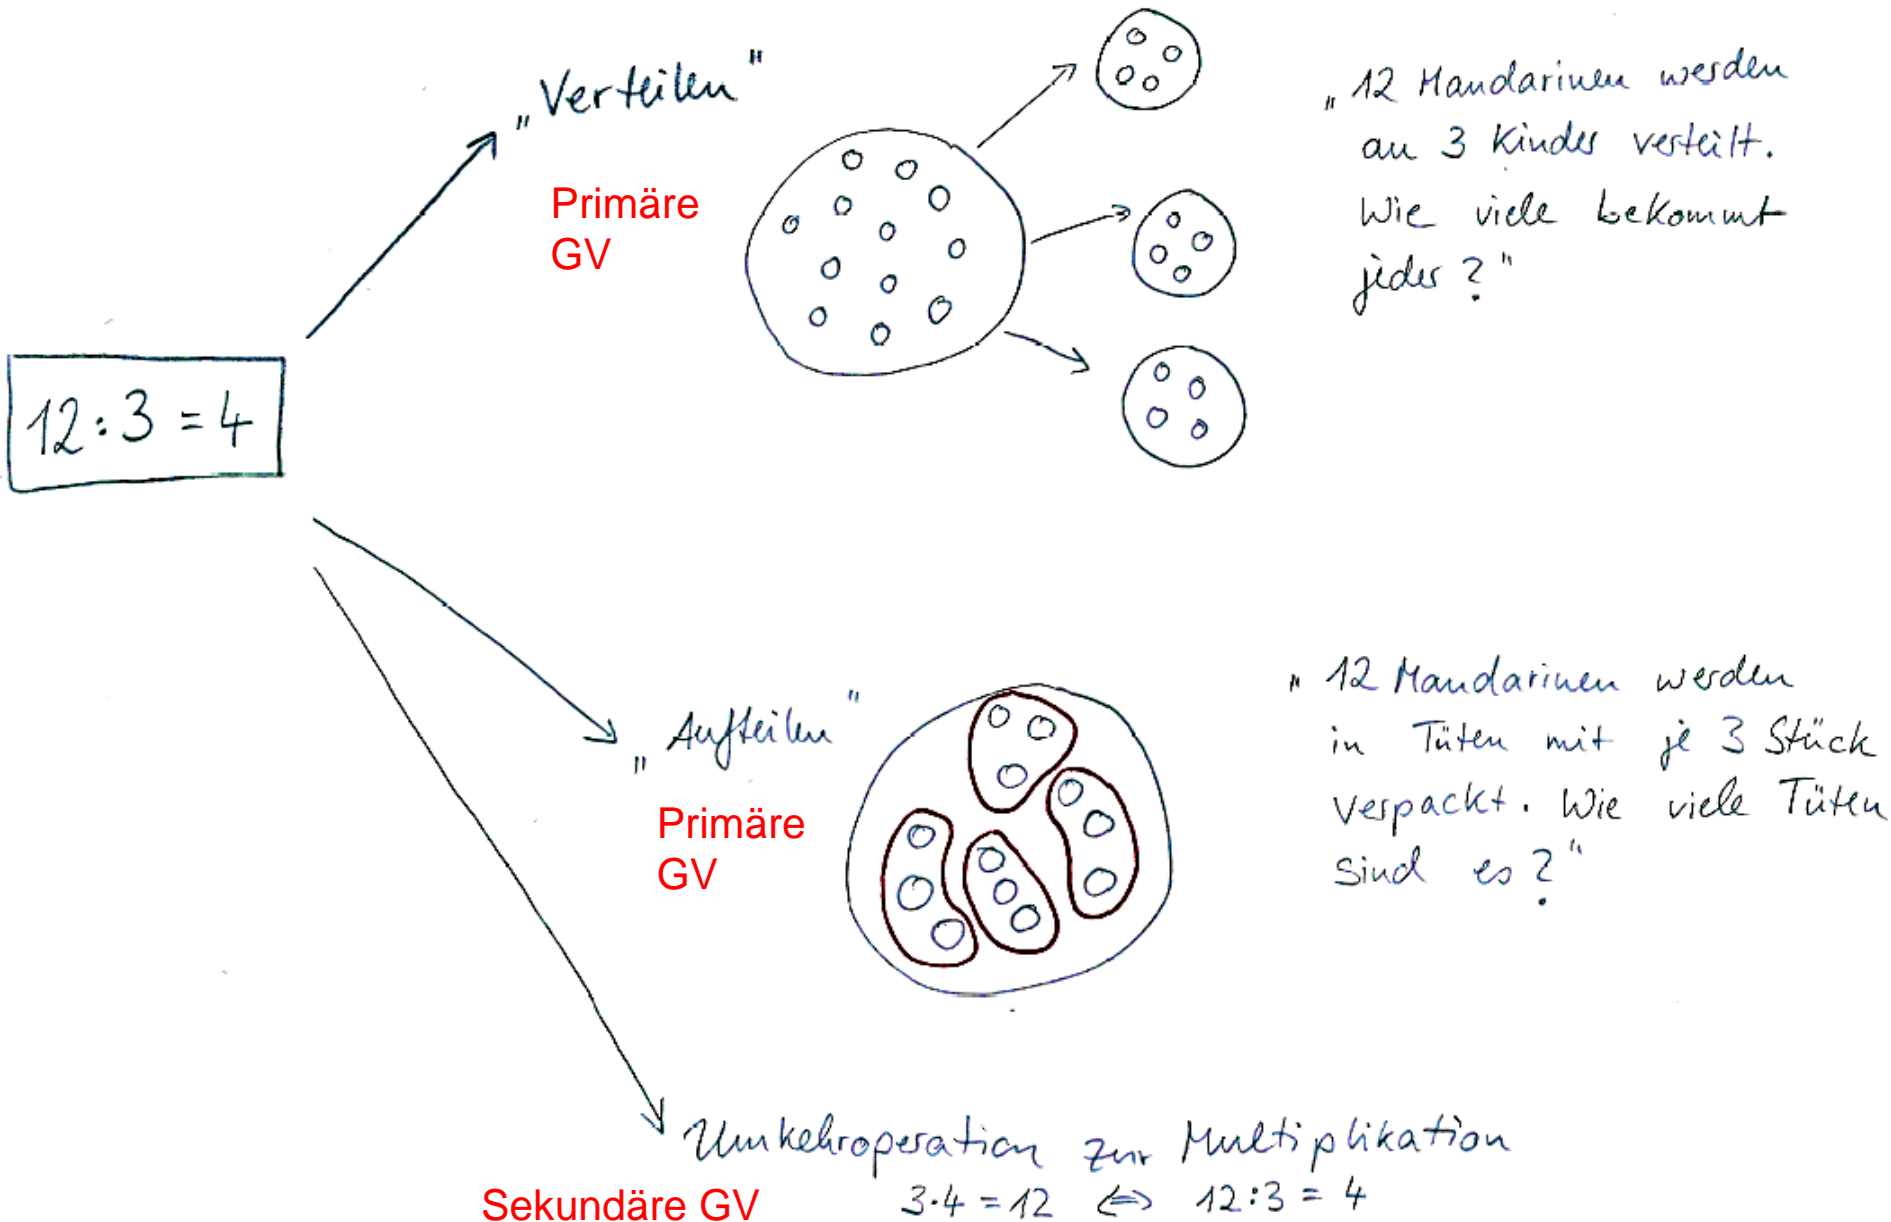 „Verteilen"
Primäre
GV
„12 Mandarinen werden
an 3 Kinder verteilt.
Wie viele bekommt
jeder?"
12:3 = 4
„Aufteilen"
Primäre
GV
„12 Mandarinen werden
in Tüten mit je 3 Stück
verpackt. Wie viele Tüten
sind es?"
Umkehroperation zur Multiplikation
Sekundäre GV
3·4 = 12 ⇔ 12:3 = 4